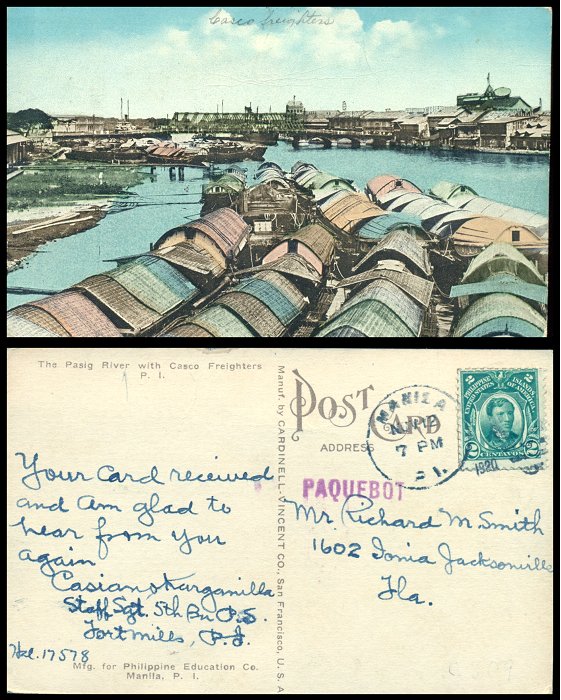 Casco Freighters
The Pasig River with Casco Freighters
P. I.
Manuf. by CARDINELL-VINCENT CO., San Francisco, U. S. A
POST CARD
ADDRESS
MANILA
7 PM
P.I.
1920
PHILIPPINE ISLANDS
UNITED STATES OF AMERICA
2 CENTAVOS 2
PAQUEBOT
Your card received
and am glad to
hear from you
again
Casiano
Staff Sgt. 5th Bn P.S.
Fort Mills, P.I.
17578
Mr. Richard M. Smith
1602 Ionia Jacksonville
Fla.
Mfg. for Philippine Education Co.
Manila, P. I.